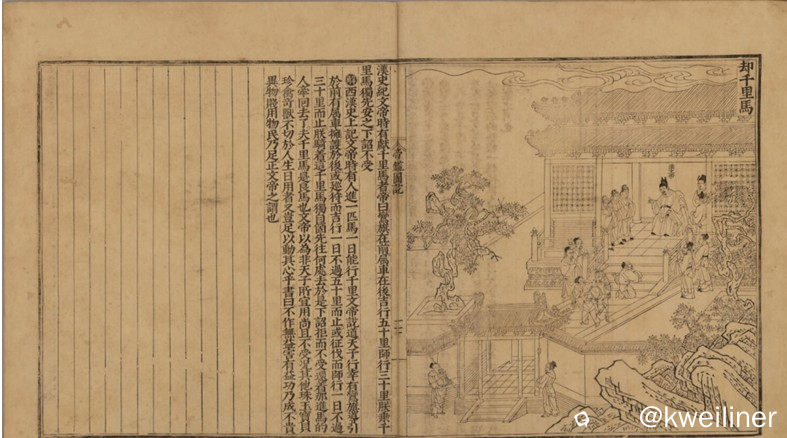 却千里馬
帝鑑圖說
漢史紀文帝時有獻千里馬者帝曰鸞旗在前屬車在後吉行五十里師行三十里朕乘千
里馬獨先安之下詔不受
解西漢史上記文帝時有人進一匹馬一日能行千里文帝說道天子行幸有鸞旗導引
於前有屬車擁護於後或巡狩而吉行一日不過五十里而止或征伐而師行一日不過
三十里而止朕騎着這千里馬獨自箇先往何處去於是下詔拒而不受還着那進馬的
人帶回去了夫千里馬是良馬也文帝以為非天子所宜用尚且不受況其他珠玉寶貝
珍禽奇獸不切於人生日用者又豈足以動其心乎書曰不作無益害有益功乃成不貴
異物賤用物民乃足正文帝之謂也
@kweiliner